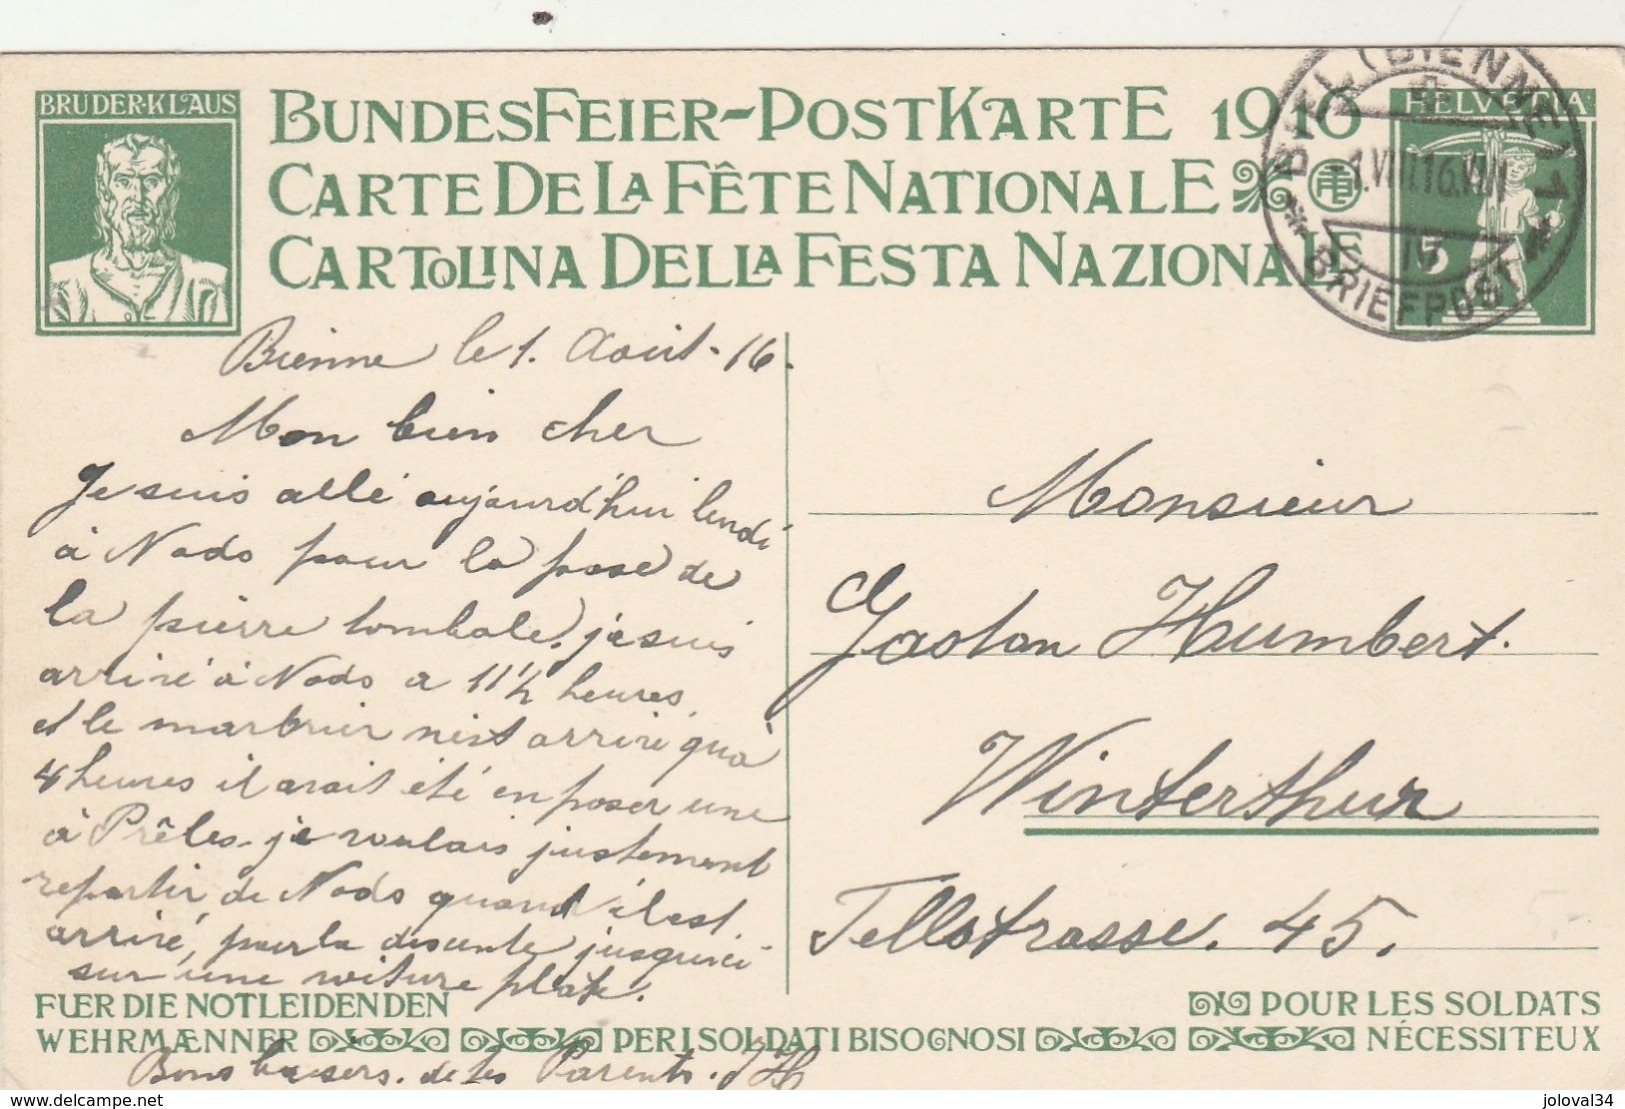 BRUDER·KLAUS
BUNDESFEIER-POSTKARTE 1916
CARTE DE LA FÊTE NATIONALE
CARTOLINA DELLA FESTA NAZIONALE
HELVETIA
5
BIEL (BIENNE) 1
1.VIII.16.VIII
15
BRIEFPOST
Bienne le 1. Août - 16.
Mon bien cher
Je suis allé aujourd'hui lundi
à Nods pour la pose de
la pierre tombale, je suis
arrivé à Nods a 11½ heures,
et le marbrier n'est arrivé qu'à
4 heures il avait été en poser une
à Prêles. je voulais justement
repartir de Nods quand il est
arrivé, pour la descente jusqu'ici
sur une voiture plate.
Bons baisers. de tes Parents. JH
Monsieur
Gaston Humbert.
Winterthur
Tellstrasse. 45.
FUER DIE NOTLEIDENDEN
WEHRMÆNNER
PER I SOLDATI BISOGNOSI
POUR LES SOLDATS
NÉCESSITEUX
delcampe.net
joloval34